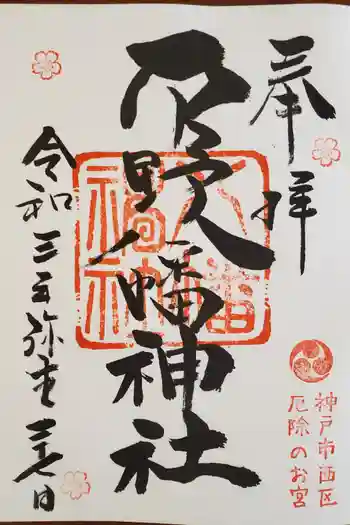 奉拝
野八幡神社
令和三年弥生
神戸市西区
厄除のお宮